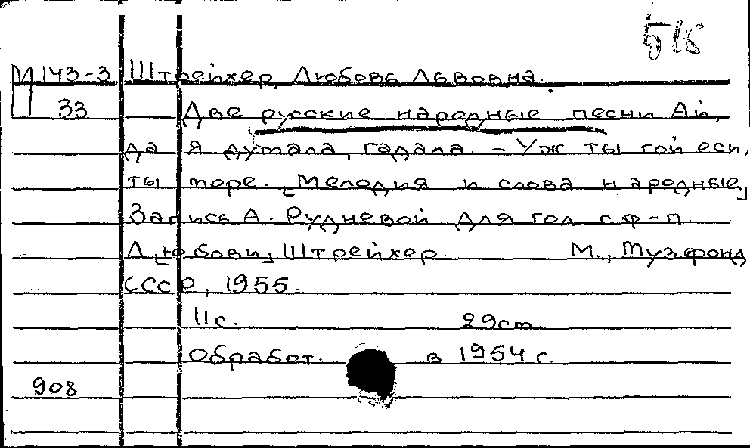 515
М 143-3 Штрейхер, Любовь Львовна.
33 Две русские народные песни Ай,
да я думала, гадала. - Уж ты гой еси,
ты море. [Мелодия и слова народные]
Запись А. Рудневой Для гол. с ф-п.
Л[юбови] Штрейхер. М., Музфонд
СССР, 1955.
11 с. 29 см
Обработ. в 1954 г.
908